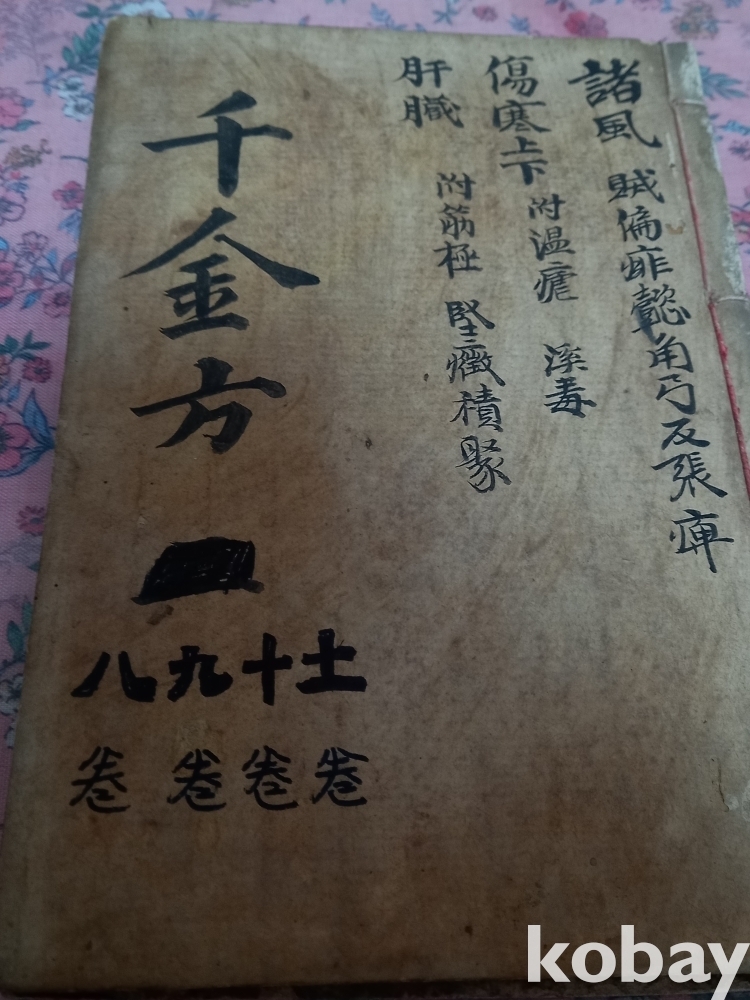 諸風 賊偏痱懿角弓反張痺
傷寒上下 附温瘧 溪毒
肝臓 附筋極 堅癥積聚
千金方
八九十十一
卷卷卷卷
kobay